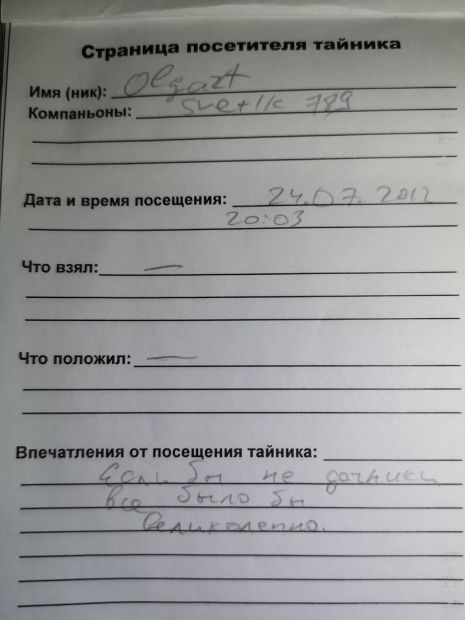 Страница посетителя тайника
Имя (ник): Olgart
Компаньоны: svetlk 789
Дата и время посещения: 24.07.2012
20:03
Что взял: —
Что положил: —
Впечатления от посещения тайника:
Если бы не дачники
все было бы
великолепно.